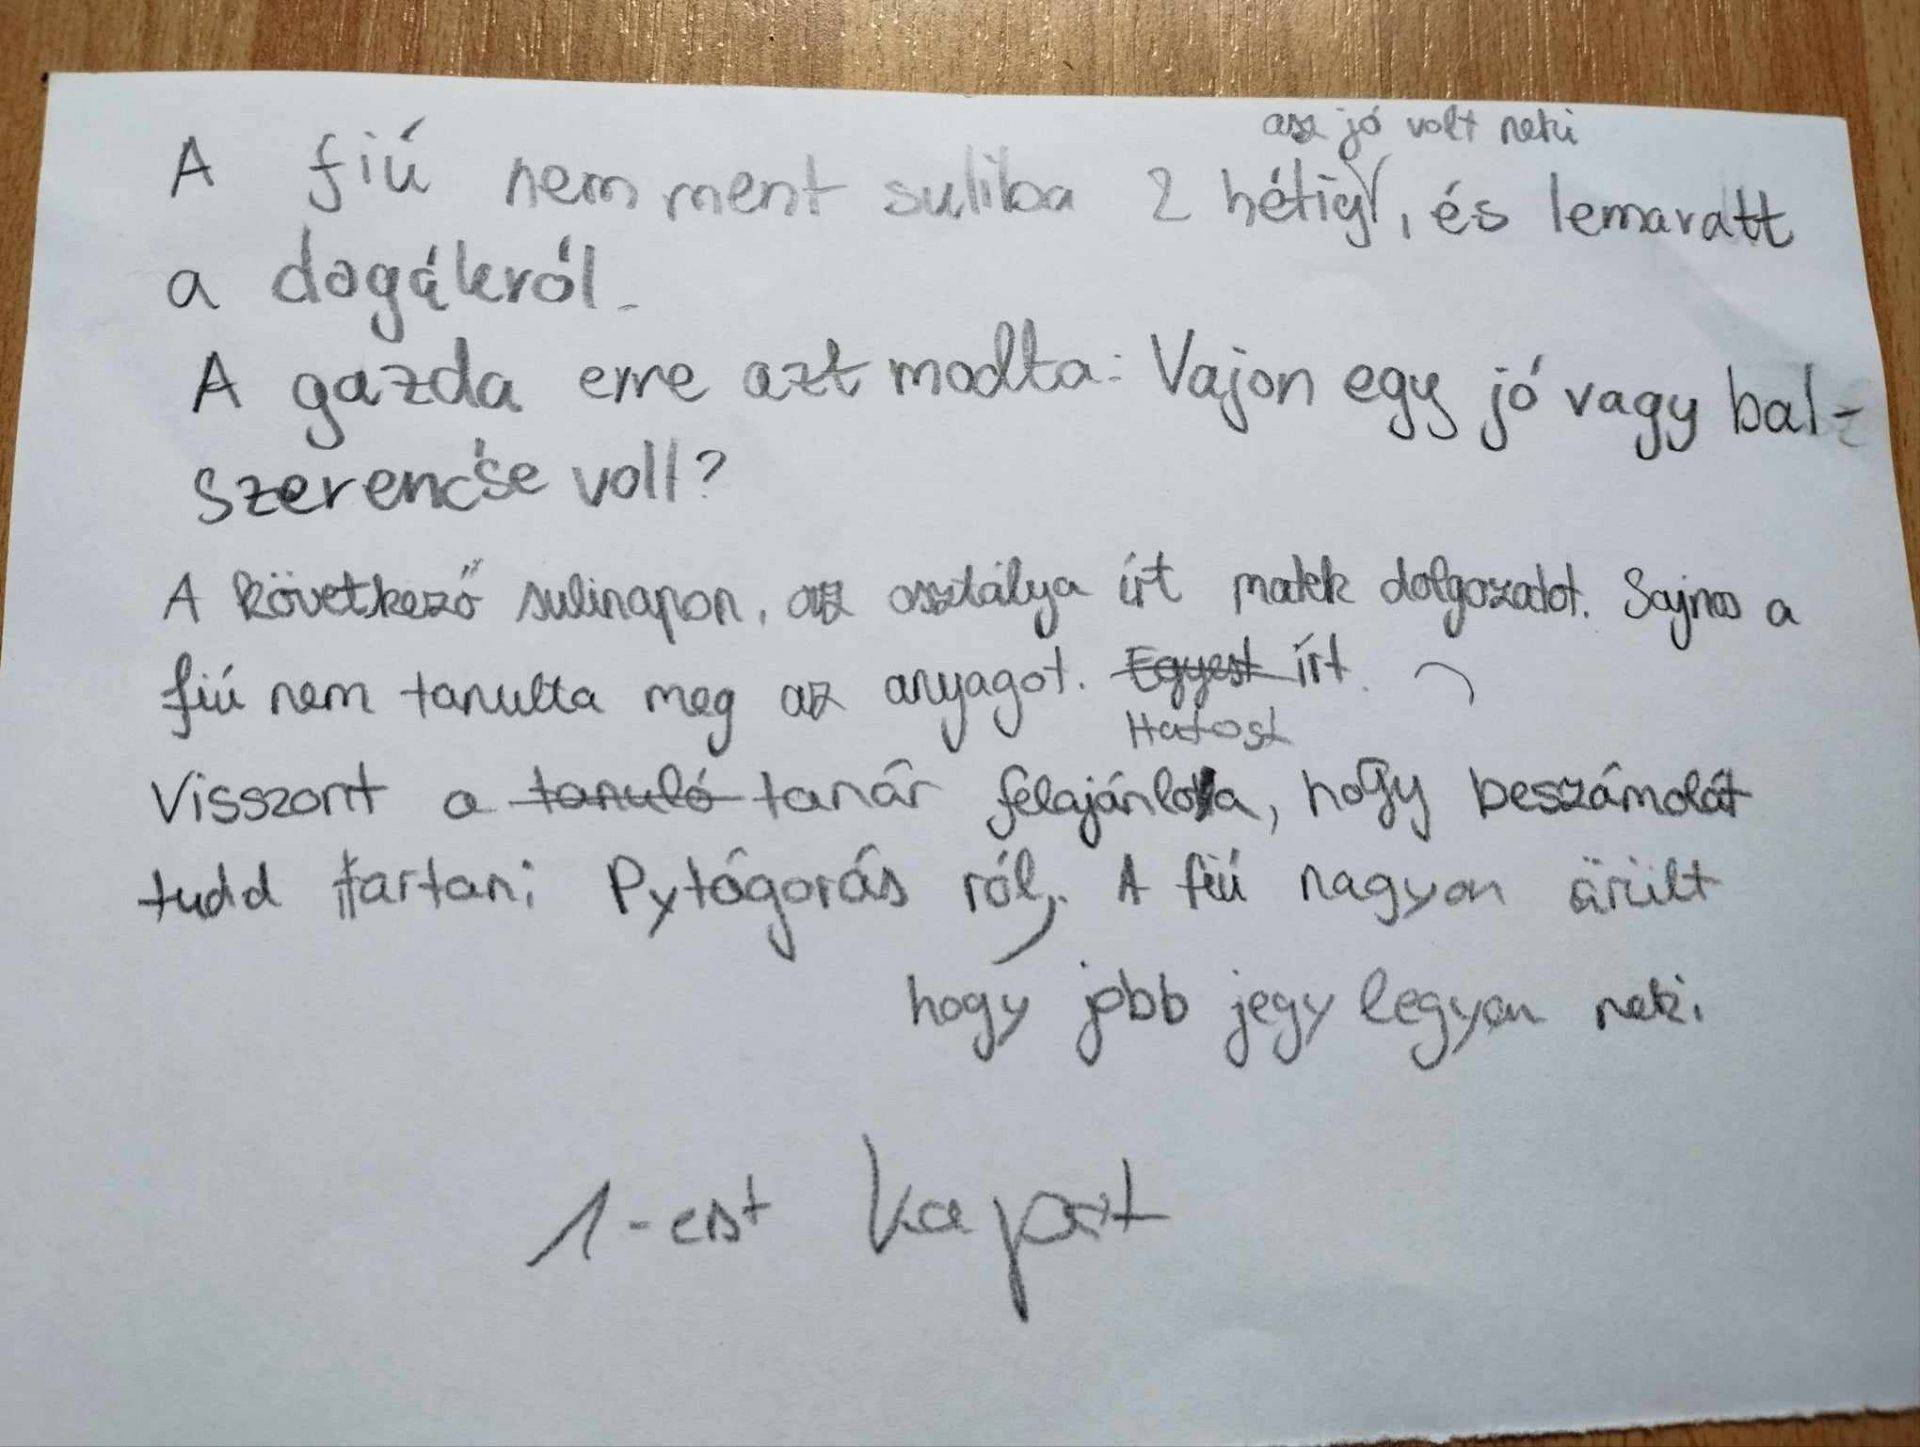 asz jó volt neki
A fiú nem ment suliba 2 hétig, és lemaratt
a dogákról.
A gazda erre azt modta: Vajon egy jó vagy bal-
szerencse volt?
A következő sulinapon, az osztálya írt matek dolgozatot. Sajnos a
fiú nem tanulta meg az anyagot. Egyest írt.
Hatost
Visszont a tanuló tanár felajánlota, hogy beszámolót
tudd tartani Pytágorás ról. A fiú nagyon örült
hogy jobb jegy legyen neki.
1-est kapott